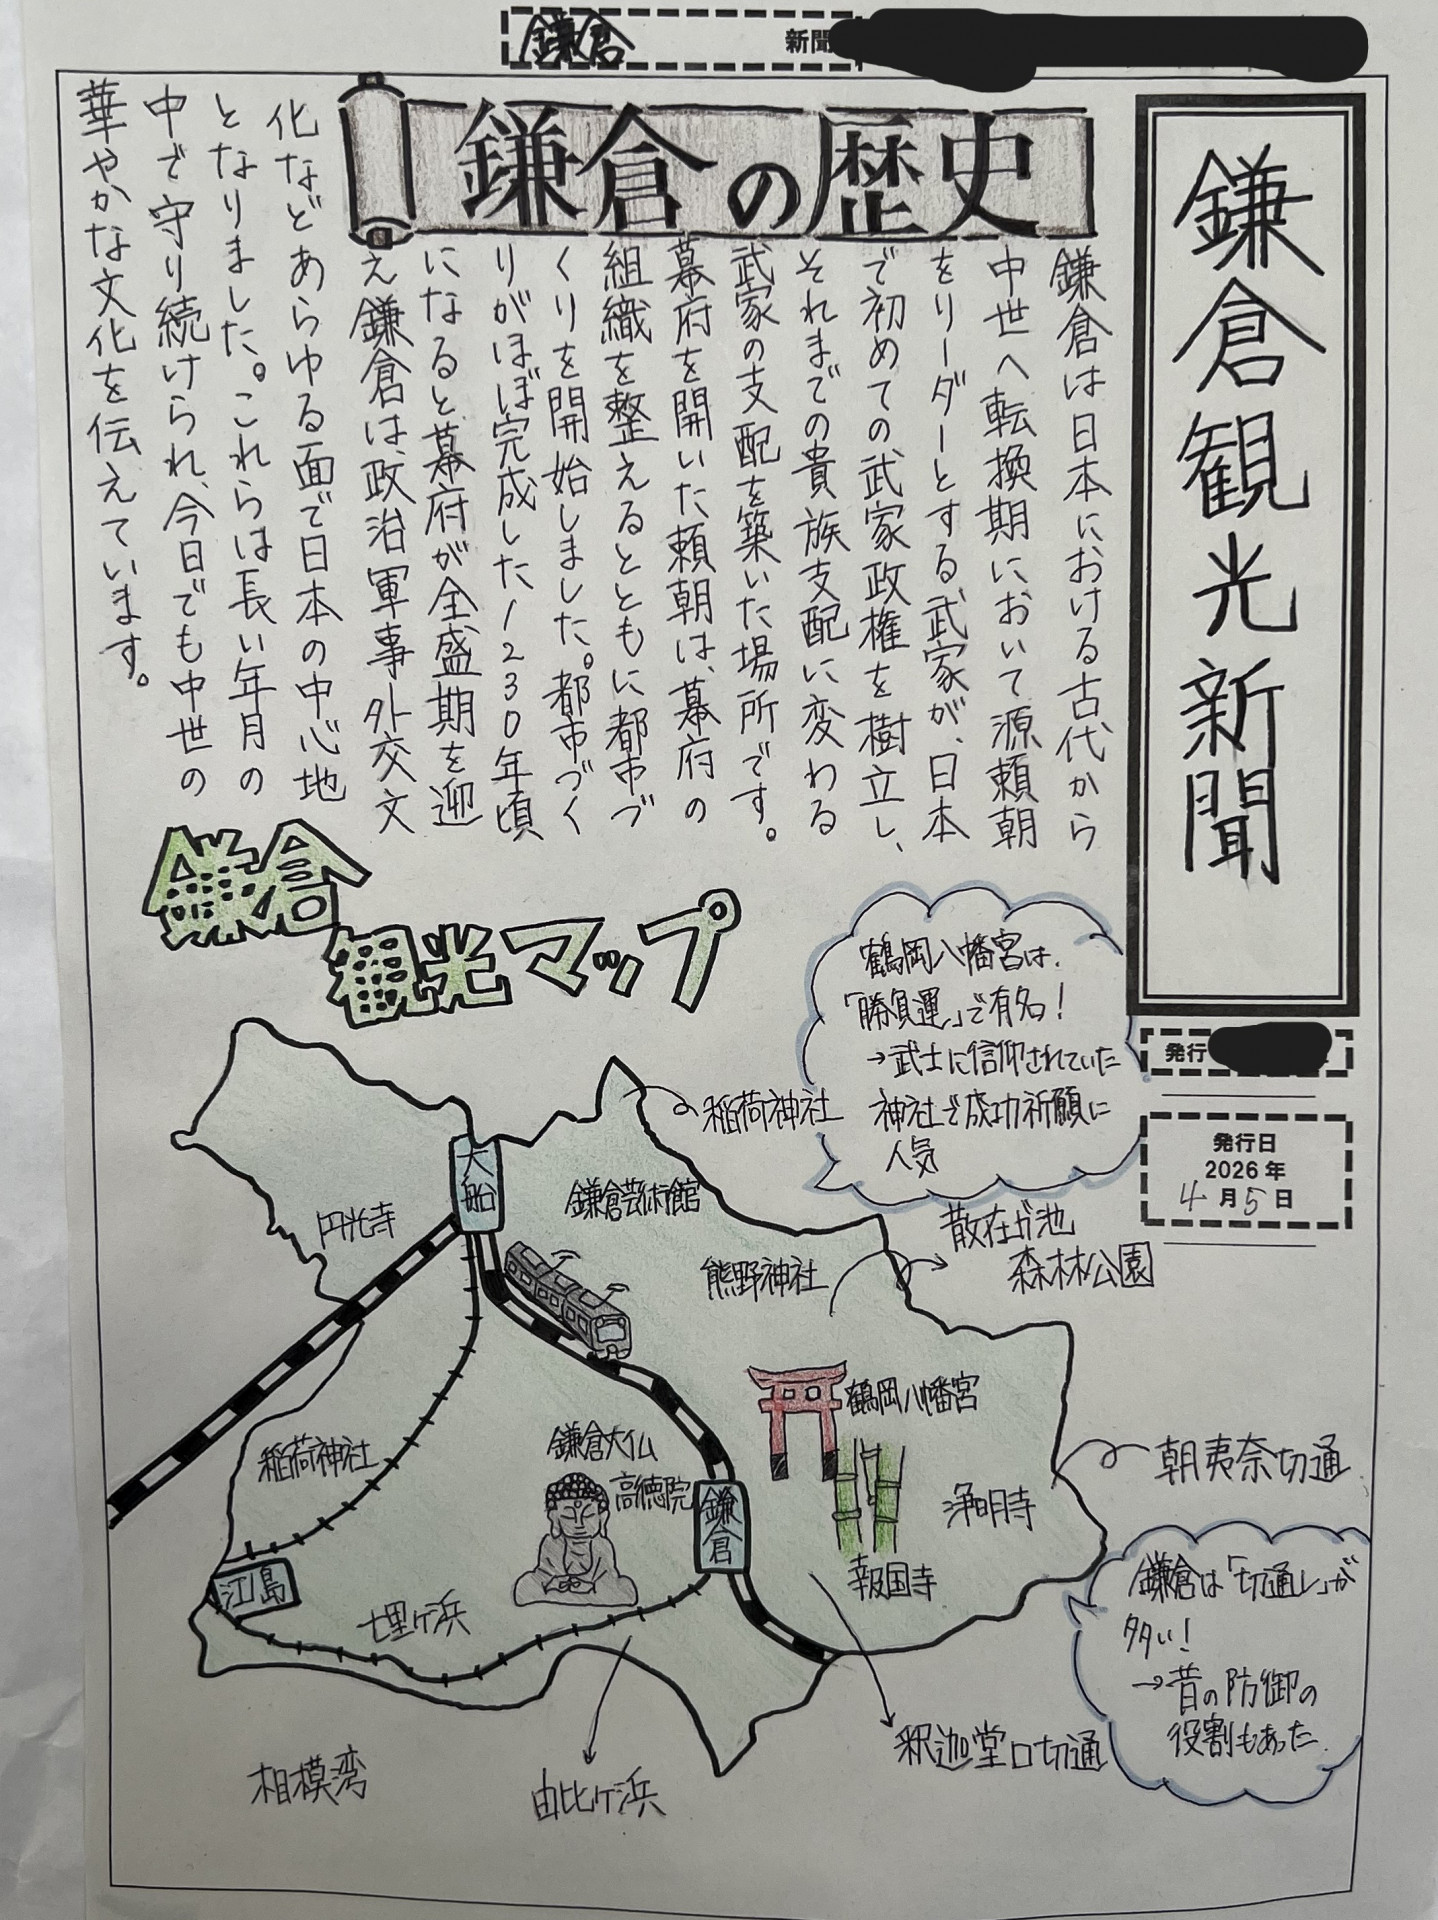 鎌倉 新聞
鎌倉観光新聞
発行
発行日
2026年
4月5日
鎌倉の歴史
鎌倉は日本における古代から
中世へ転換期において源頼朝
をリーダーとする武家が、日本
で初めての武家政権を樹立し、
それまでの貴族支配に変わる
武家の支配を築いた場所です。
幕府を開いた頼朝は、幕府の
組織を整えるとともに都市づ
くりを開始しました。都市づく
りがほぼ完成した1230年頃
になると幕府が全盛期を迎
え鎌倉は政治軍事外交文
化などあらゆる面で日本の中心地
となりました。これらは長い年月の
中で守り続けられ、今日でも中世の
華やかな文化を伝えています。
鎌倉
観光マップ
鶴岡八幡宮は、
「勝負運」で有名!
→武士に信仰されていた
神社で成功祈願に
人気
稲荷神社
大船
円光寺
鎌倉芸術館
散在ガ池
森林公園
熊野神社
鶴岡八幡宮
稲荷神社
鎌倉大仏
高徳院
鎌倉
浄明寺
朝夷奈切通
報国寺
江ノ島
七里ヶ浜
鎌倉は「切通し」が
多い!
→昔の防御の
役割もあった。
釈迦堂口切通
由比ヶ浜
相模湾